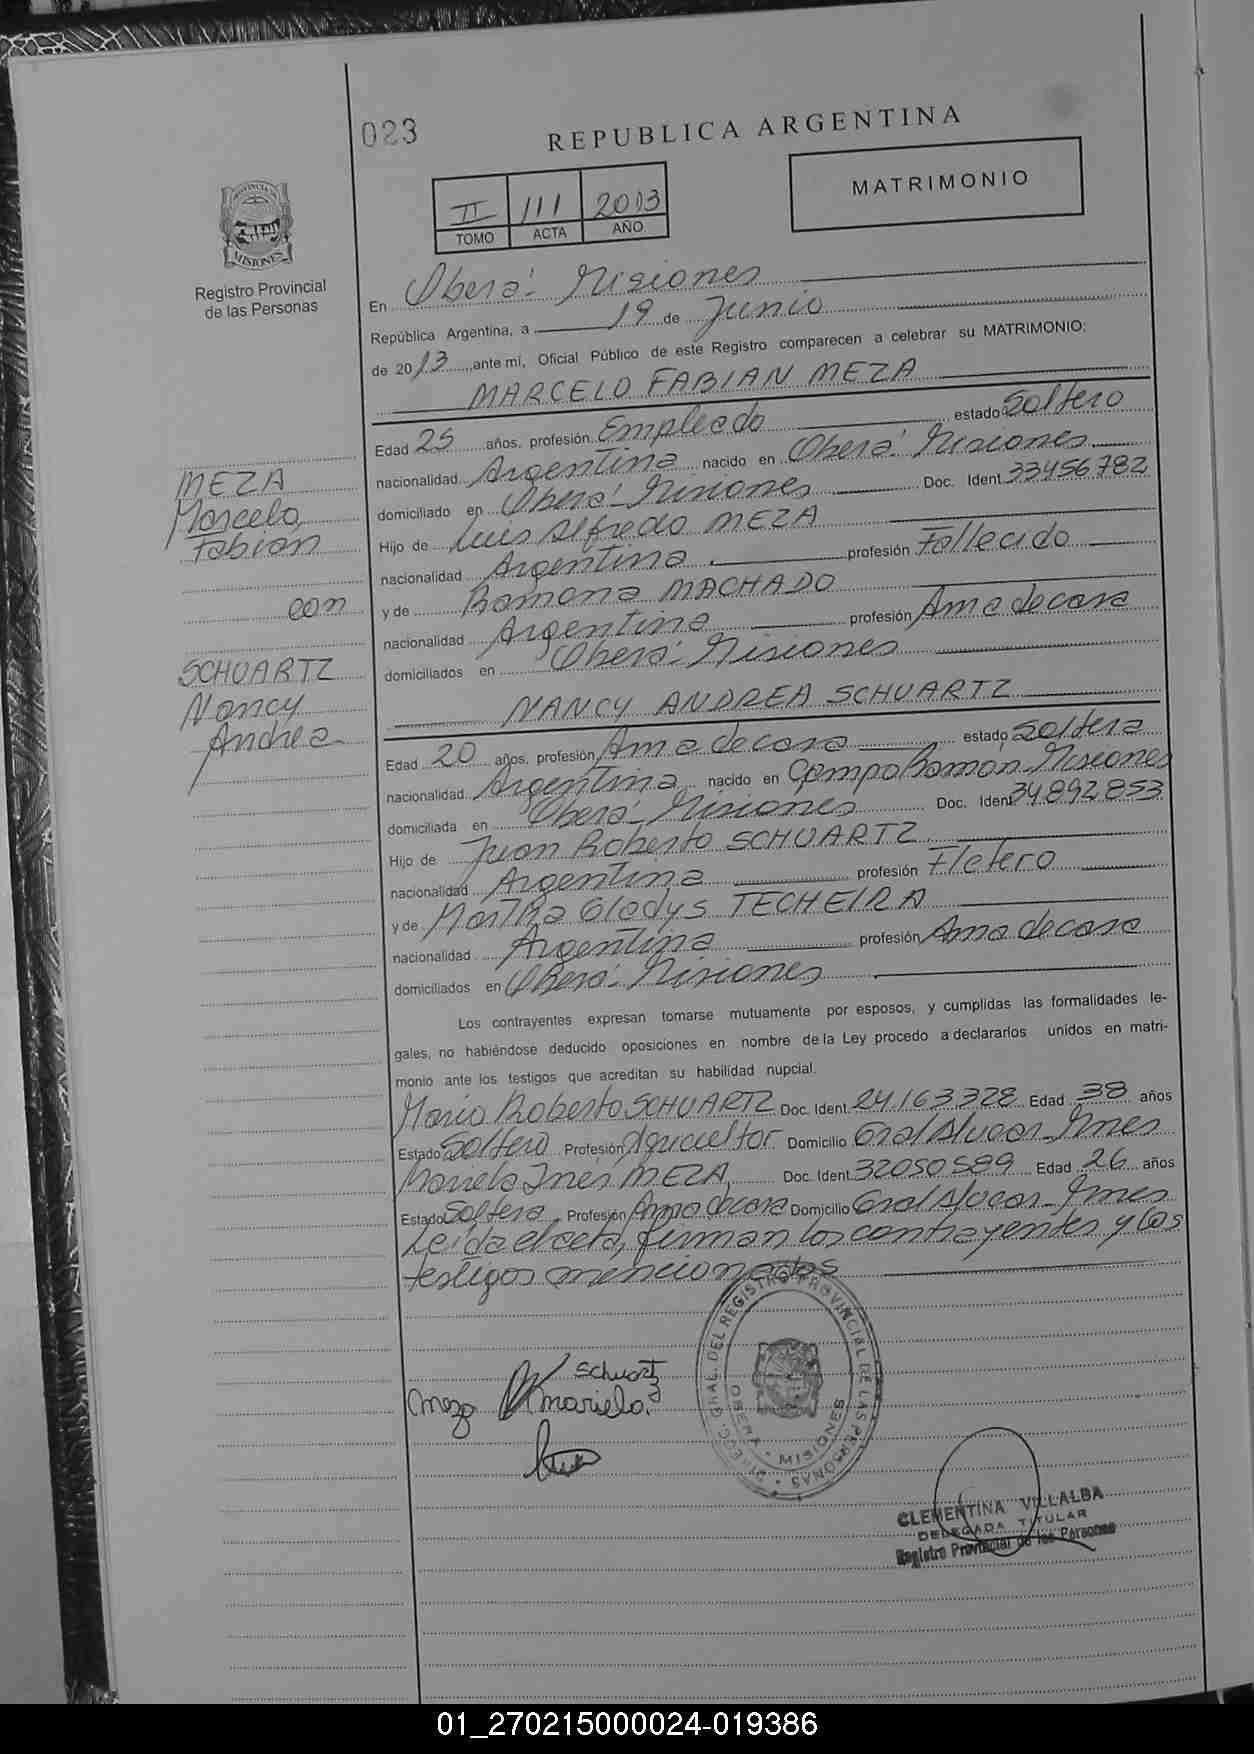 023
REPUBLICA ARGENTINA
MATRIMONIO
II 111 2013
TOMO ACTA AÑO
PROVINCIA DE
MISIONES
Registro Provincial
de las Personas
En Oberá - Misiones
República Argentina, a 19 de Junio
de 2013 ante mí, Oficial Público de este Registro comparecen a celebrar su MATRIMONIO:
MARCELO FABIAN MEZA
Edad 25 años, profesión Empleado estado Soltero
nacionalidad Argentina nacido en Oberá - Misiones
domiciliado en Oberá - Misiones Doc. Ident 33456782
Hijo de Luis Alfredo MEZA
nacionalidad Argentina profesión Fallecido
y de Ramona MACHADO
nacionalidad Argentina profesión Ama de casa
domiciliados en Oberá - Misiones
MEZA
Marcelo
Fabian
con
SCHUARTZ
Nancy
Andrea
NANCY ANDREA SCHUARTZ
Edad 20 años, profesión Ama de casa estado Soltera
nacionalidad Argentina nacido en Campo Ramón - Misiones
domiciliada en Oberá - Misiones Doc. Ident 34892853
Hijo de Juan Roberto SCHUARTZ
nacionalidad Argentina profesión Fletero
y de Martha Gladys TECHEIRA
nacionalidad Argentina profesión Ama de casa
domiciliados en Oberá - Misiones
Los contrayentes expresan tomarse mutuamente por esposos, y cumplidas las formalidades le-
gales, no habiéndose deducido oposiciones en nombre de la Ley procedo a declararlos unidos en matri-
monio ante los testigos que acreditan su habilidad nupcial.
Mario Roberto SCHUARTZ Doc. Ident. 24163328 Edad 38 años
Estado Soltero Profesión Agricultor Domicilio Gral Alvear - Mnes
Mariela Inés MEZA Doc. Ident 32050589 Edad 26 años
Estado Soltera Profesión Ama de casa Domicilio Gral Alvear - Mnes
Leída el acta, firman los contrayentes y los
testigos mencionados
Schuartz
Meza Mariela
DIRECC. GRAL. DEL REGISTRO PROVINCIAL DE LAS PERSONAS
OBERA - MISIONES
CLEMENTINA VILLALBA
DELEGADA TITULAR
Registro Provincial de las Personas
01_270215000024-019386